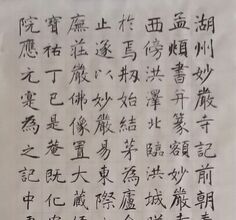 湖州妙嚴寺記前朝奉
孟頫書并篆額妙嚴寺
西傍洪澤北臨洪城映
於焉剏始結茅為廬舍
止遂以妙嚴易東際之
廡莊嚴佛像置大藏經
寶祐丁巳是菴既化安
院應元寔為之記中更